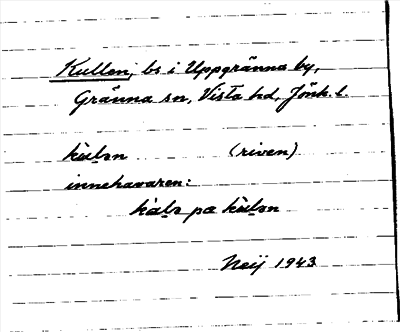 Kullen, bs i Uppgränna by,
Gränna sn, Vista hd, Jönk. l.
kùlən (riven)
innehavaren:
kàlə pa kùlən
Neij 1943